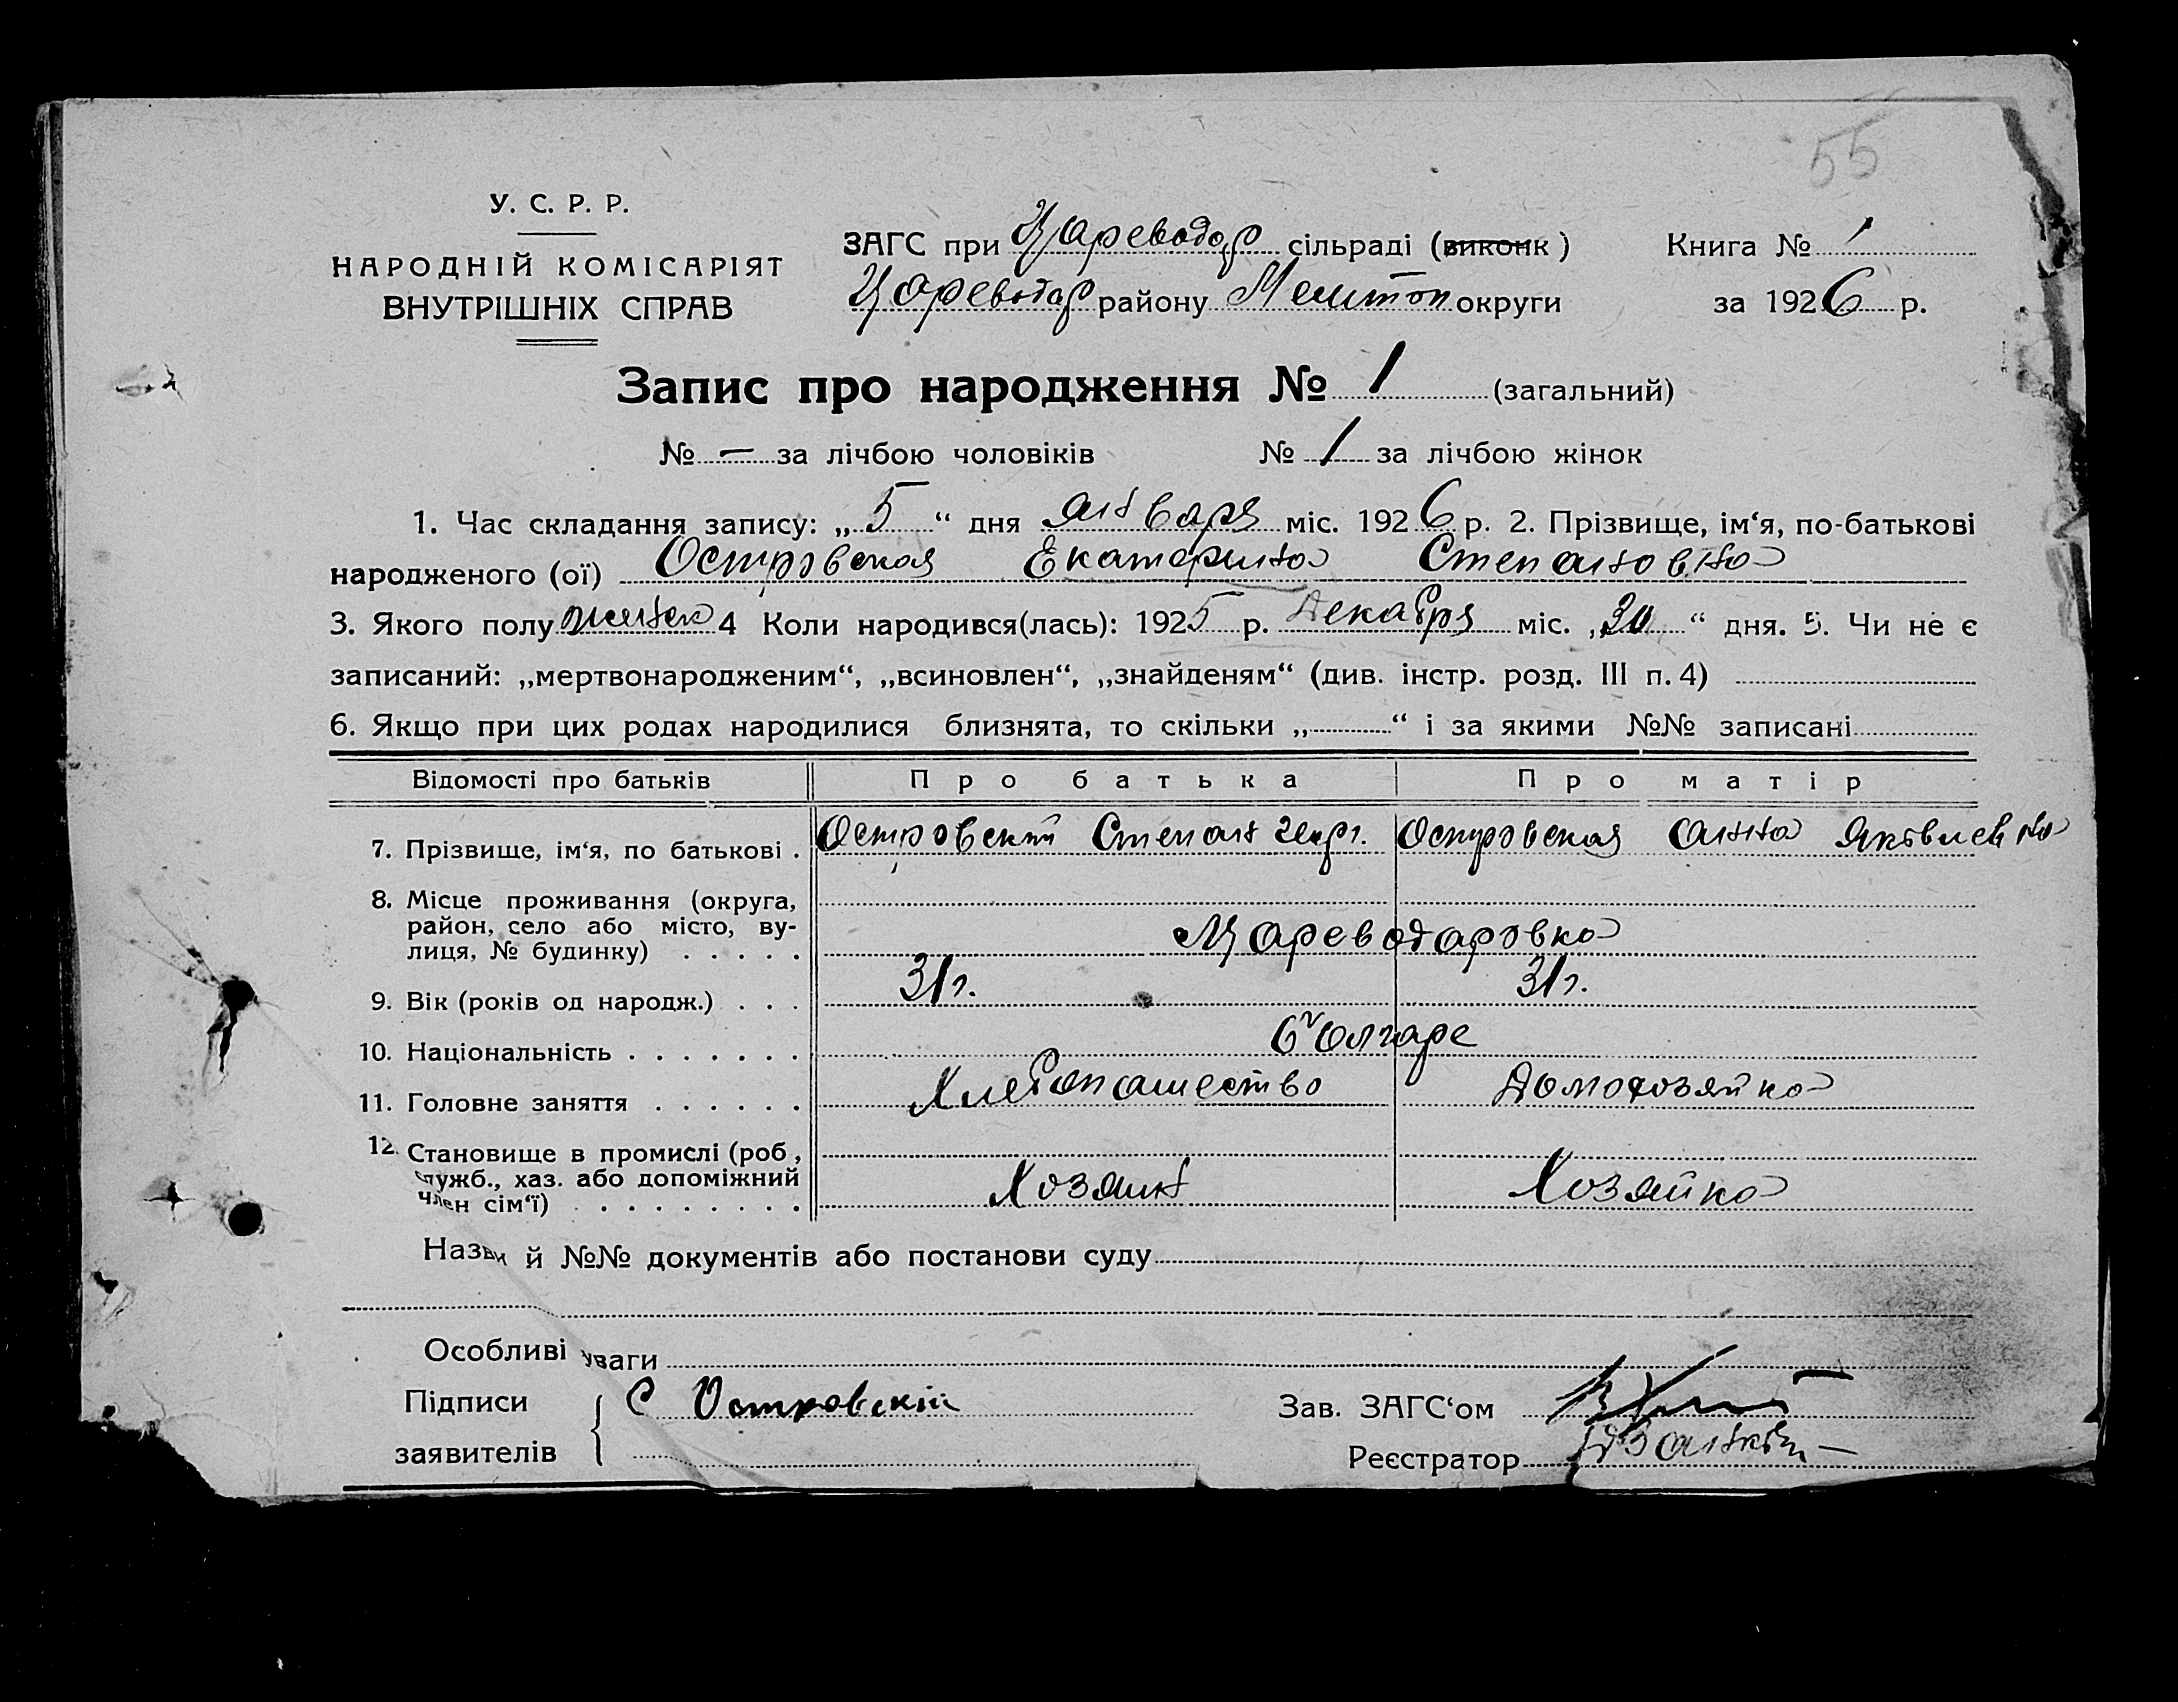 55
У. С. Р. Р.
НАРОДНІЙ КОМІСАРІЯТ
ВНУТРІШНІХ СПРАВ
ЗАГС при Цареводар сільраді (виконк)
Цареводар району Мелитоп округи
Книга № 1
за 1926 р.
Запис про народження № 1 (загальний)
№ — за лічбою чоловіків № 1 за лічбою жінок
1. Час складання запису: „5“ дня января міс. 1926 р. 2. Прізвище, ім‘я, по-батькові
народженого (ої) Островская Екатерина Степановна
3. Якого полу женск 4 Коли народився(лась): 1925 р. Декабря міс. „30“ дня. 5. Чи не є
записаний: „мертвонародженим“, „всиновлен“, „знайденям“ (див. інстр. розд. III п. 4)
6. Якщо при цих родах народилися близнята, то скільки „ “ і за якими №№ записані
Відомості про батьків Про батька Про матір
7. Прізвище, ім‘я, по батькові . Островский Степан Георг. Островская Анна Яковлевна
8. Місце проживання (округа,
район, село або місто, ву-
лиця, № будинку) . . . . . Цареводаровка
9. Вік (років од народж.) . . . 31 г. 31 г.
10. Національність . . . . . . . болгаре
11. Головне заняття . . . . . . Хлебопашество Домохозяйка
12. Становище в промислі (роб,
служб., хаз. або допоміжний
член сім‘ї) . . . . . . . . . Хозяин Хозяйка
Назви й №№ документів або постанови суду
Особливі уваги
Підписи С Островскій Зав. ЗАГС‘ом
заявителів Реєстратор